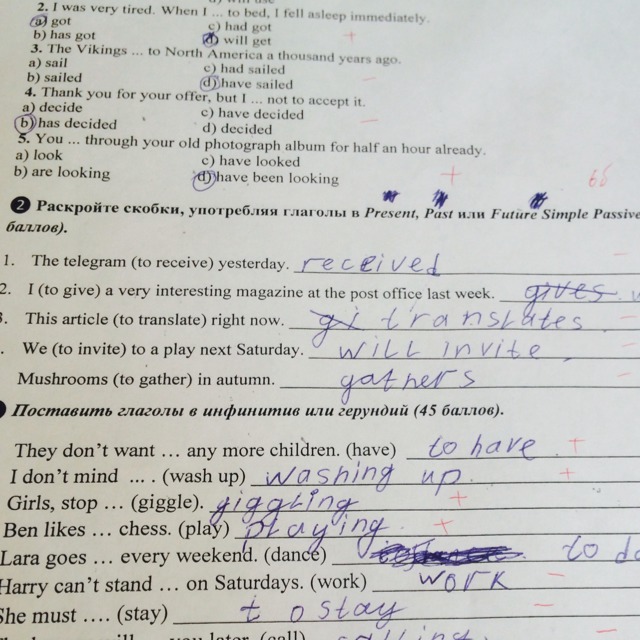 2. I was very tired. When I ... to bed, I fell asleep immediately.
a) got c) had got
b) has got d) will get +
3. The Vikings ... to North America a thousand years ago.
a) sail c) had sailed
b) sailed d) have sailed -
4. Thank you for your offer, but I ... not to accept it.
a) decide c) have decided
b) has decided d) decided -
5. You ... through your old photograph album for half an hour already.
a) look c) have looked
b) are looking d) have been looking + 6б
2 Раскройте скобки, употребляя глаголы в Present, Past или Future Simple Passive
баллов).
1. The telegram (to receive) yesterday. received -
2. I (to give) a very interesting magazine at the post office last week. gives
. This article (to translate) right now. translates -
. We (to invite) to a play next Saturday. will invite -
Mushrooms (to gather) in autumn. gathers -
Поставить глаголы в инфинитив или герундий (45 баллов).
They don't want ... any more children. (have) to have +
I don't mind ... . (wash up) washing up. +
Girls, stop ... (giggle). giggling +
Ben likes ... chess. (play) playing. +
Lara goes ... every weekend. (dance) to
Harry can't stand ... on Saturdays. (work) work -
She must .... (stay) to stay -
you later. (call) calling